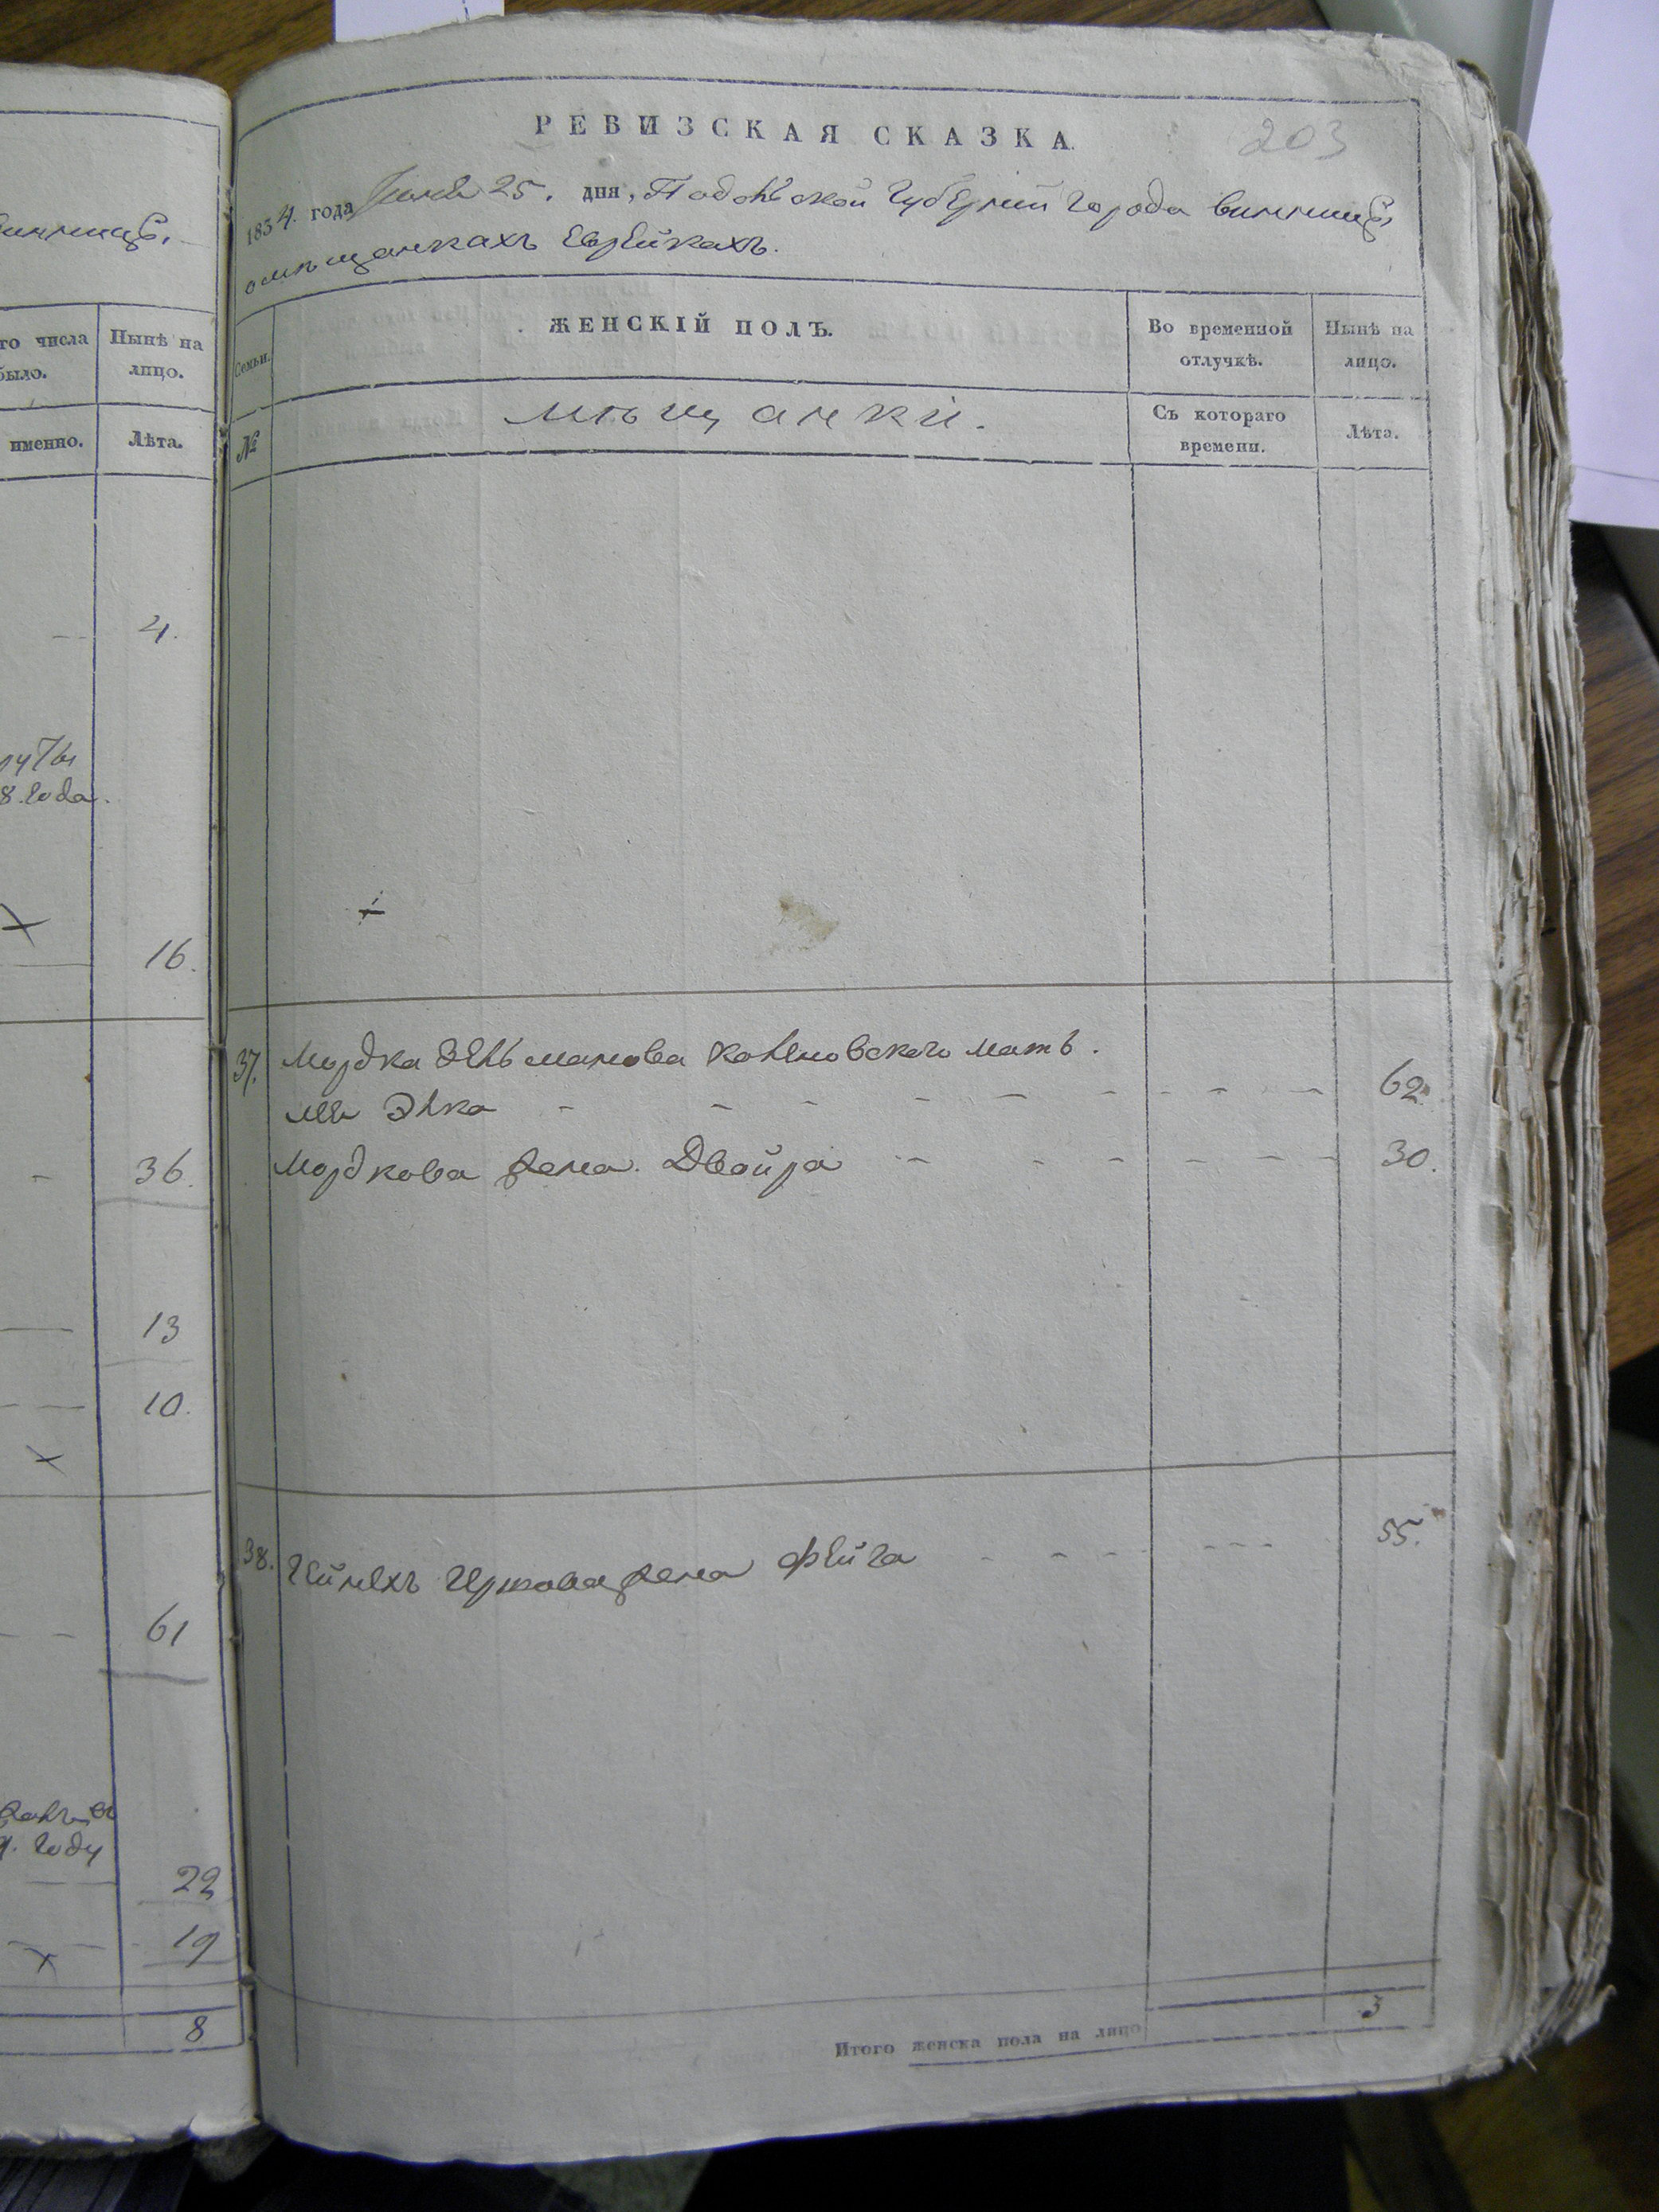 РЕВИЗСКАЯ СКАЗКА.
203
1834. года Июня 25. дня, Подольской Губернии Города винницы,
о мѣщанкахъ Еврейкахъ.
го числа
было.
Нынѣ на
лицо.
именно.
Лѣта.
Семьи.
ЖЕНСКІЙ ПОЛЪ.
Во временной
отлучкѣ.
Нынѣ на
лицо.
№
мѣщанки.
Съ котораго
времени.
Лѣта.
4.
8. года.
16.
37. Мордка Зельманова мать.
Элка 62.
36.
Мордкова жена Двойра 30.
13
10.
38. Гейнехъ жена Фейга 55.
61
году
22
19
8
Итого женска пола на лицо 3